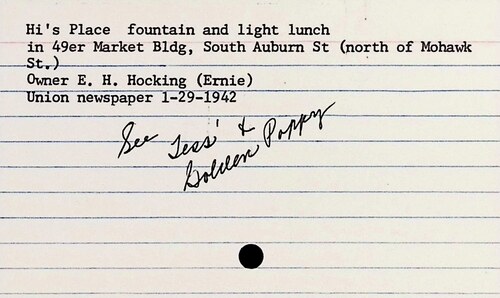 Hi's Place  fountain and light lunch
in 49er Market Bldg, South Auburn St (north of Mohawk
St.)
Owner E. H. Hocking (Ernie)
Union newspaper 1-29-1942
See Tess' &
Golden Poppy